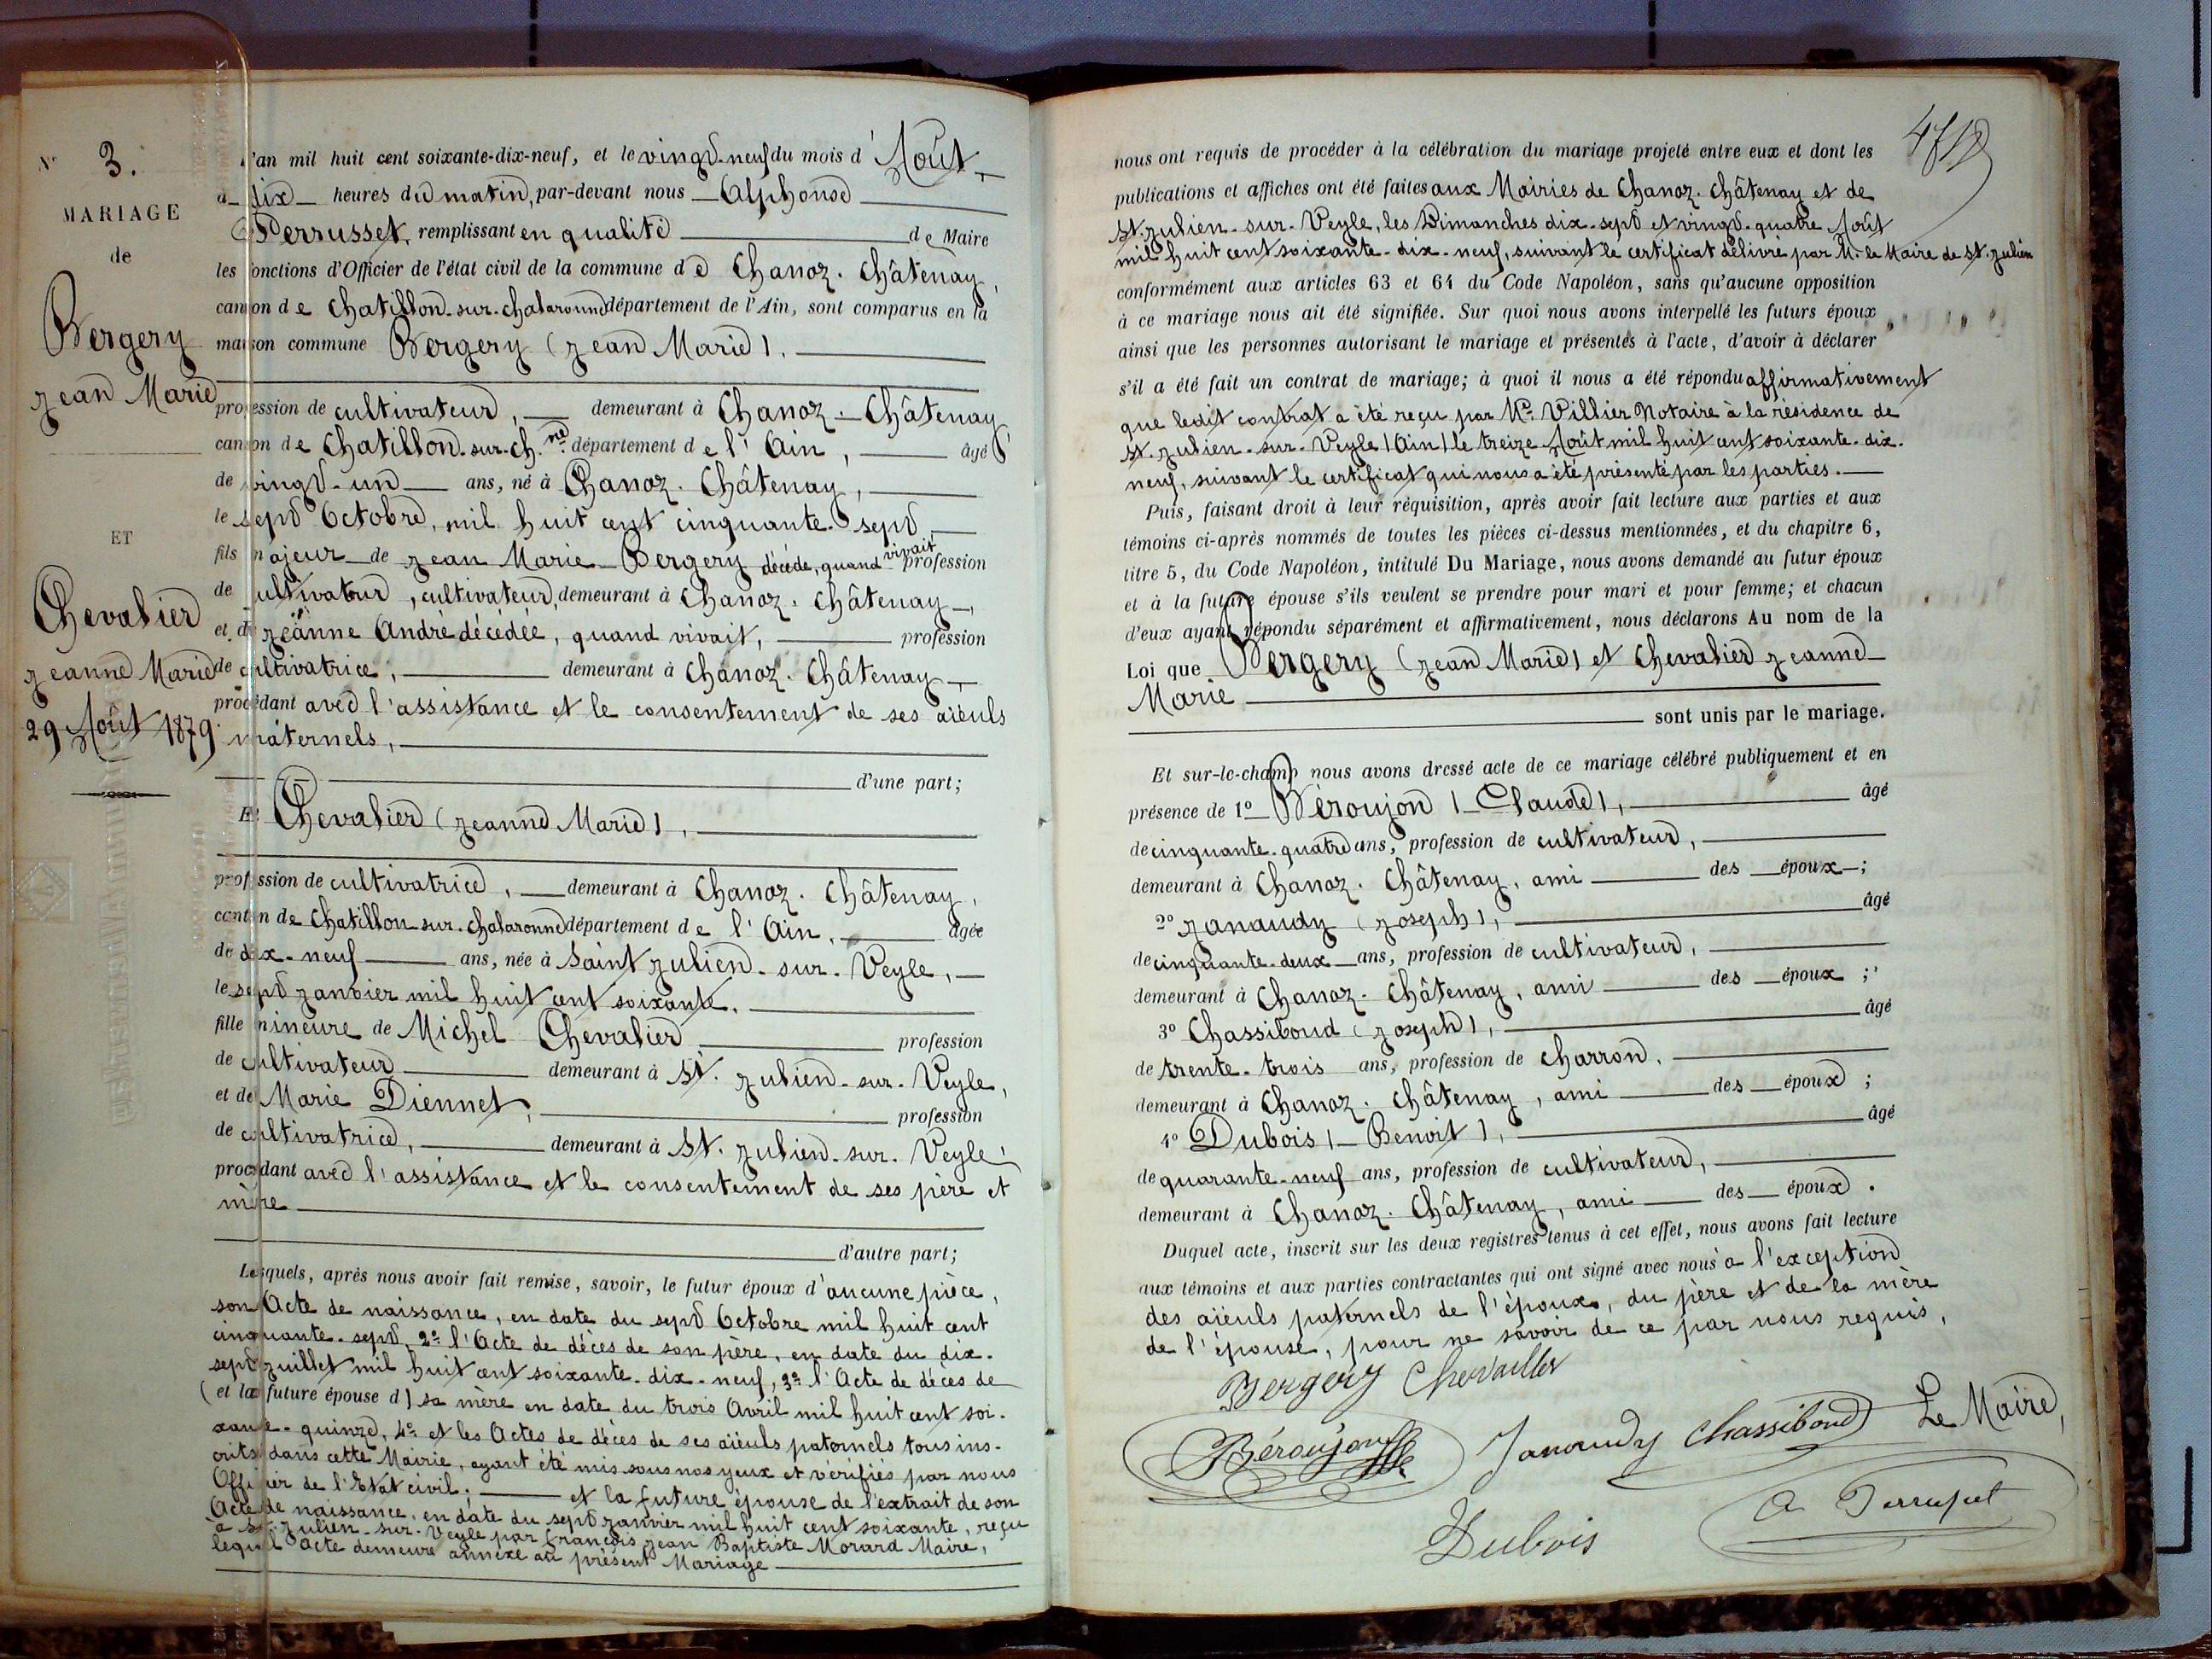 N° 3.
MARIAGE
de
Bergery
Jean Marie
ET
Chevalier
Jeanne Marie
29 Août 1879.
L'an mil huit cent soixante-dix-neuf, et le vingt-neuf du mois d'Août
à dix heures du matin, par-devant nous Alphonse
Perrusset, remplissant en qualité de Maire
les fonctions d'Officier de l'état civil de la commune de Chanoz-Châtenay,
canton de Chatillon-sur-Chalaronne département de l'Ain, sont comparus en la
maison commune Bergery (Jean Marie),
profession de cultivateur, demeurant à Chanoz-Châtenay
canton de Chatillon-sur-Ch.ne département de l'Ain, âgé
de vingt-un ans, né à Chanoz-Châtenay,
le sept Octobre, mil huit cent cinquante-sept
fils majeur de Jean Marie Bergery décédé, quand vivait profession
de cultivateur, cultivateur, demeurant à Chanoz-Châtenay,
et de Jeanne André décédée, quand vivait, profession
de cultivatrice, demeurant à Chanoz-Châtenay
procédant avec l'assistance et le consentement de ses aïeuls
maternels,
d'une part;
Et Chevalier (Jeanne Marie),
profession de cultivatrice, demeurant à Chanoz-Châtenay,
canton de Chatillon-sur-Chalaronne département de l'Ain, âgée
de dix-neuf ans, née à Saint Julien-sur-Veyle,
le sept Janvier mil huit cent soixante.
fille mineure de Michel Chevalier profession
de cultivateur demeurant à St. Julien-sur-Veyle,
et de Marie Diennet, profession
de cultivatrice, demeurant à St. Julien-sur-Veyle,
procédant avec l'assistance et le consentement de ses père et
mère
d'autre part;
Lesquels, après nous avoir fait remise, savoir, le futur époux d'aucune pièce,
son Acte de naissance, en date du sept Octobre mil huit cent
cinquante-sept, 2° l'Acte de décès de son père, en date du dix-
sept Juillet mil huit cent soixante-dix-neuf, 3° l'Acte de décès de
(et la future épouse d) sa mère en date du trois Avril mil huit cent soi-
xante-quinze, 4° et les Actes de décès de ses aïeuls paternels tous ins-
crits dans cette Mairie, ayant été mis sous nos yeux et vérifiés par nous
Officier de l'Etat civil; et la future épouse de l'extrait de son
Acte de naissance, en date du sept Janvier mil huit cent soixante, reçu
à St. Julien-sur-Veyle par François Jean Baptiste Morard Maire,
lequel Acte demeure annexé au présent Mariage
nous ont requis de procéder à la célébration du mariage projeté entre eux et dont les
publications et affiches ont été faites aux Mairies de Chanoz-Châtenay et de
St. Julien-sur-Veyle, les Dimanches dix-sept et vingt-quatre Août
mil huit cent soixante-dix-neuf, suivant le certificat délivré par M. le Maire de St. Julien
conformément aux articles 63 et 64 du Code Napoléon, sans qu'aucune opposition
à ce mariage nous ait été signifiée. Sur quoi nous avons interpellé les futurs époux,
ainsi que les personnes autorisant le mariage et présentés à l'acte, d'avoir à déclarer
s'il a été fait un contrat de mariage; à quoi il nous a été répondu affirmativement
que ledit contrat a été reçu par Me. Villier Notaire à la résidence de
St. Julien-sur-Veyle (Ain) le treize Août mil huit cent soixante-dix-
neuf, suivant le certificat qui nous a été présenté par les parties.
Puis, faisant droit à leur réquisition, après avoir fait lecture aux parties et aux
témoins ci-après nommés de toutes les pièces ci-dessus mentionnées, et du chapitre 6,
titre 5, du Code Napoléon, intitulé Du Mariage, nous avons demandé au futur époux
et à la future épouse s'ils veulent se prendre pour mari et pour femme; et chacun
d'eux ayant répondu séparément et affirmativement, nous déclarons Au nom de la
Loi que Bergery (Jean Marie) et Chevalier Jeanne
Marie
sont unis par le mariage.
Et sur-le-champ nous avons dressé acte de ce mariage célébré publiquement et en
présence de 1° Béroujon (Claude), âgé
de cinquante-quatre ans, profession de cultivateur,
demeurant à Chanoz-Châtenay, ami des époux;
2° Janaudy (Joseph), âgé
de cinquante-deux ans, profession de cultivateur,
demeurant à Chanoz-Châtenay, ami des époux;
3° Chassiboud (Joseph), âgé
de trente-trois ans, profession de charron,
demeurant à Chanoz-Châtenay, ami des époux;
4° Dubois (Benoit), âgé
de quarante-neuf ans, profession de cultivateur,
demeurant à Chanoz-Châtenay, ami des époux.
Duquel acte, inscrit sur les deux registres tenus à cet effet, nous avons fait lecture
aux témoins et aux parties contractantes qui ont signé avec nous à l'exception
des aïeuls paternels de l'époux, du père et de la mère
de l'épouse, pour ne savoir de ce par nous requis,
Bergery Chevallier
Béroujon Janaudy Chassiboud Le Maire,
Dubois A Perrusset